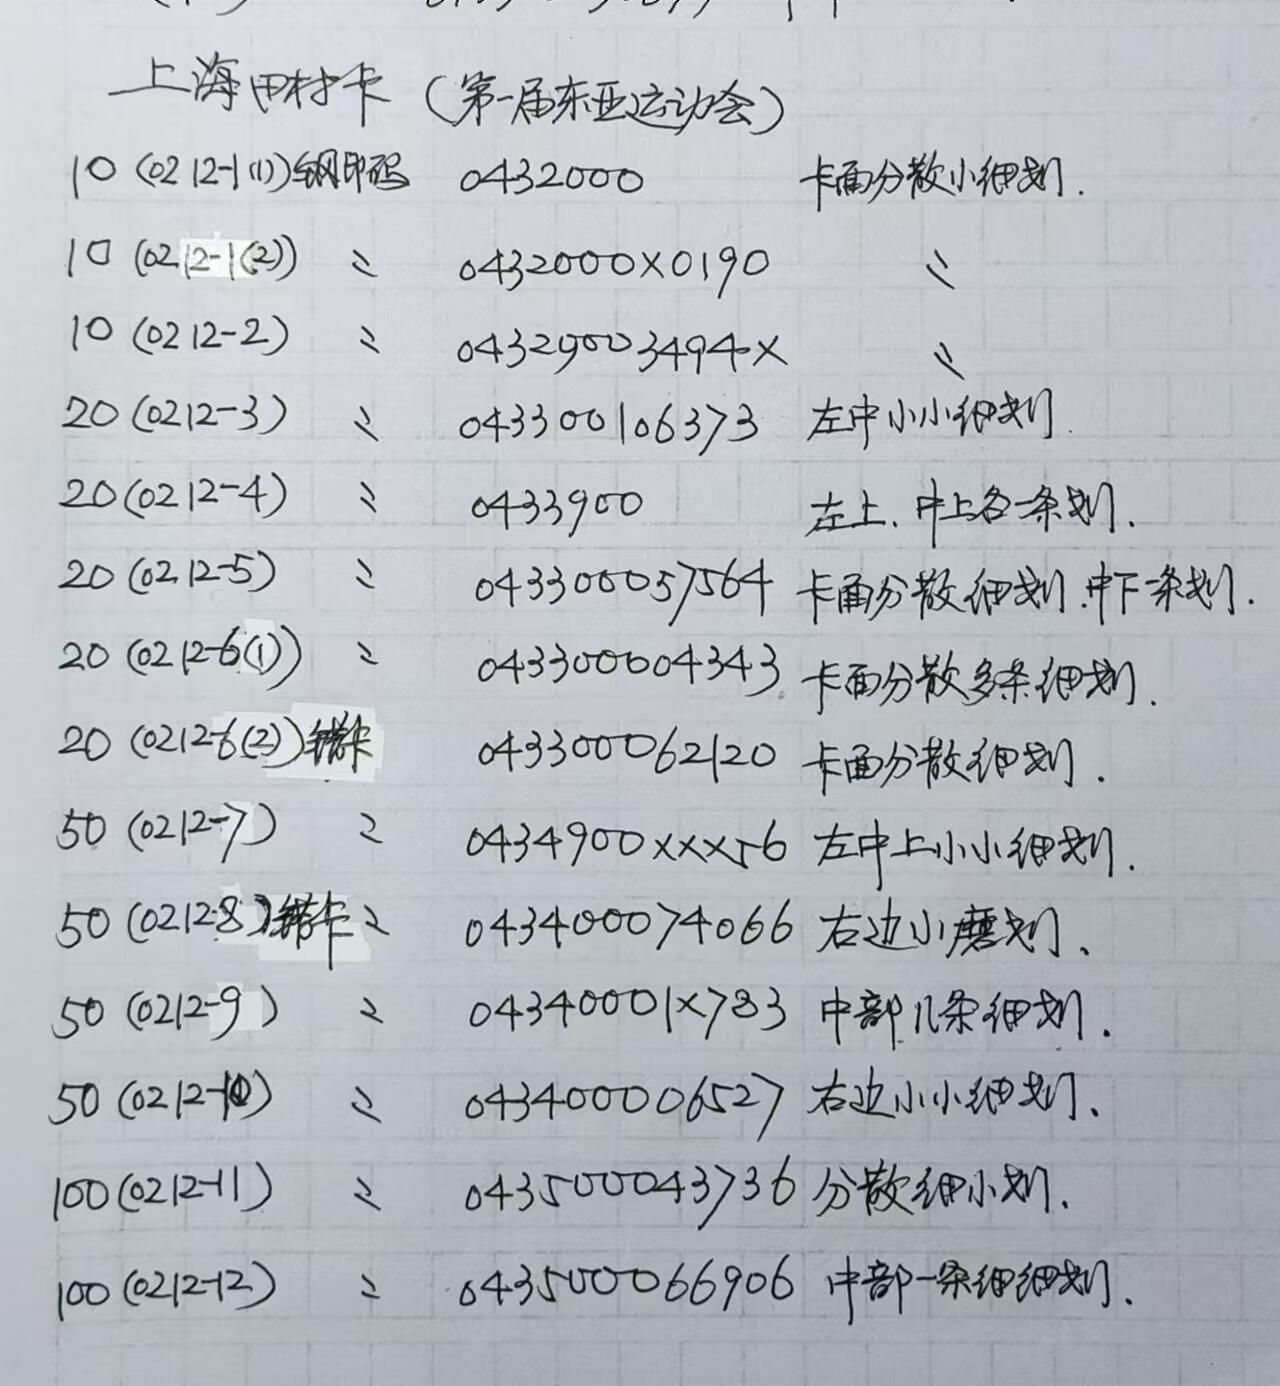 上海田村卡（第一届东亚运动会）
10（0212-1(1)）钢印码 0432000 卡面分散小细划.
10（0212-1(2)） 〃 0432000×0190 〃
10（0212-2） 〃 04329003494× 〃
20（0212-3） 〃 043300106373 左中小小细划.
20（0212-4） 〃 0433900 左上、中上各一条划.
20（0212-5） 〃 043300057564 卡面分散细划.中下一条划.
20（0212-6(1)） 〃 043300004343 卡面分散多条细划.
20（0212-6(2)）错卡 043300062120 卡面分散细划.
50（0212-7） 〃 0434900×××56 左中上小小细划.
50（0212-8）错卡 〃 043400074066 右边小磨划、
50（0212-9） 〃 04340001×783 中部几条细划.
50（0212-10） 〃 043400006527 右边小小细划、
100（0212-11） 〃 043500043736 分散细小划.
100（0212-12） 〃 043500066906 中部一条细细划.